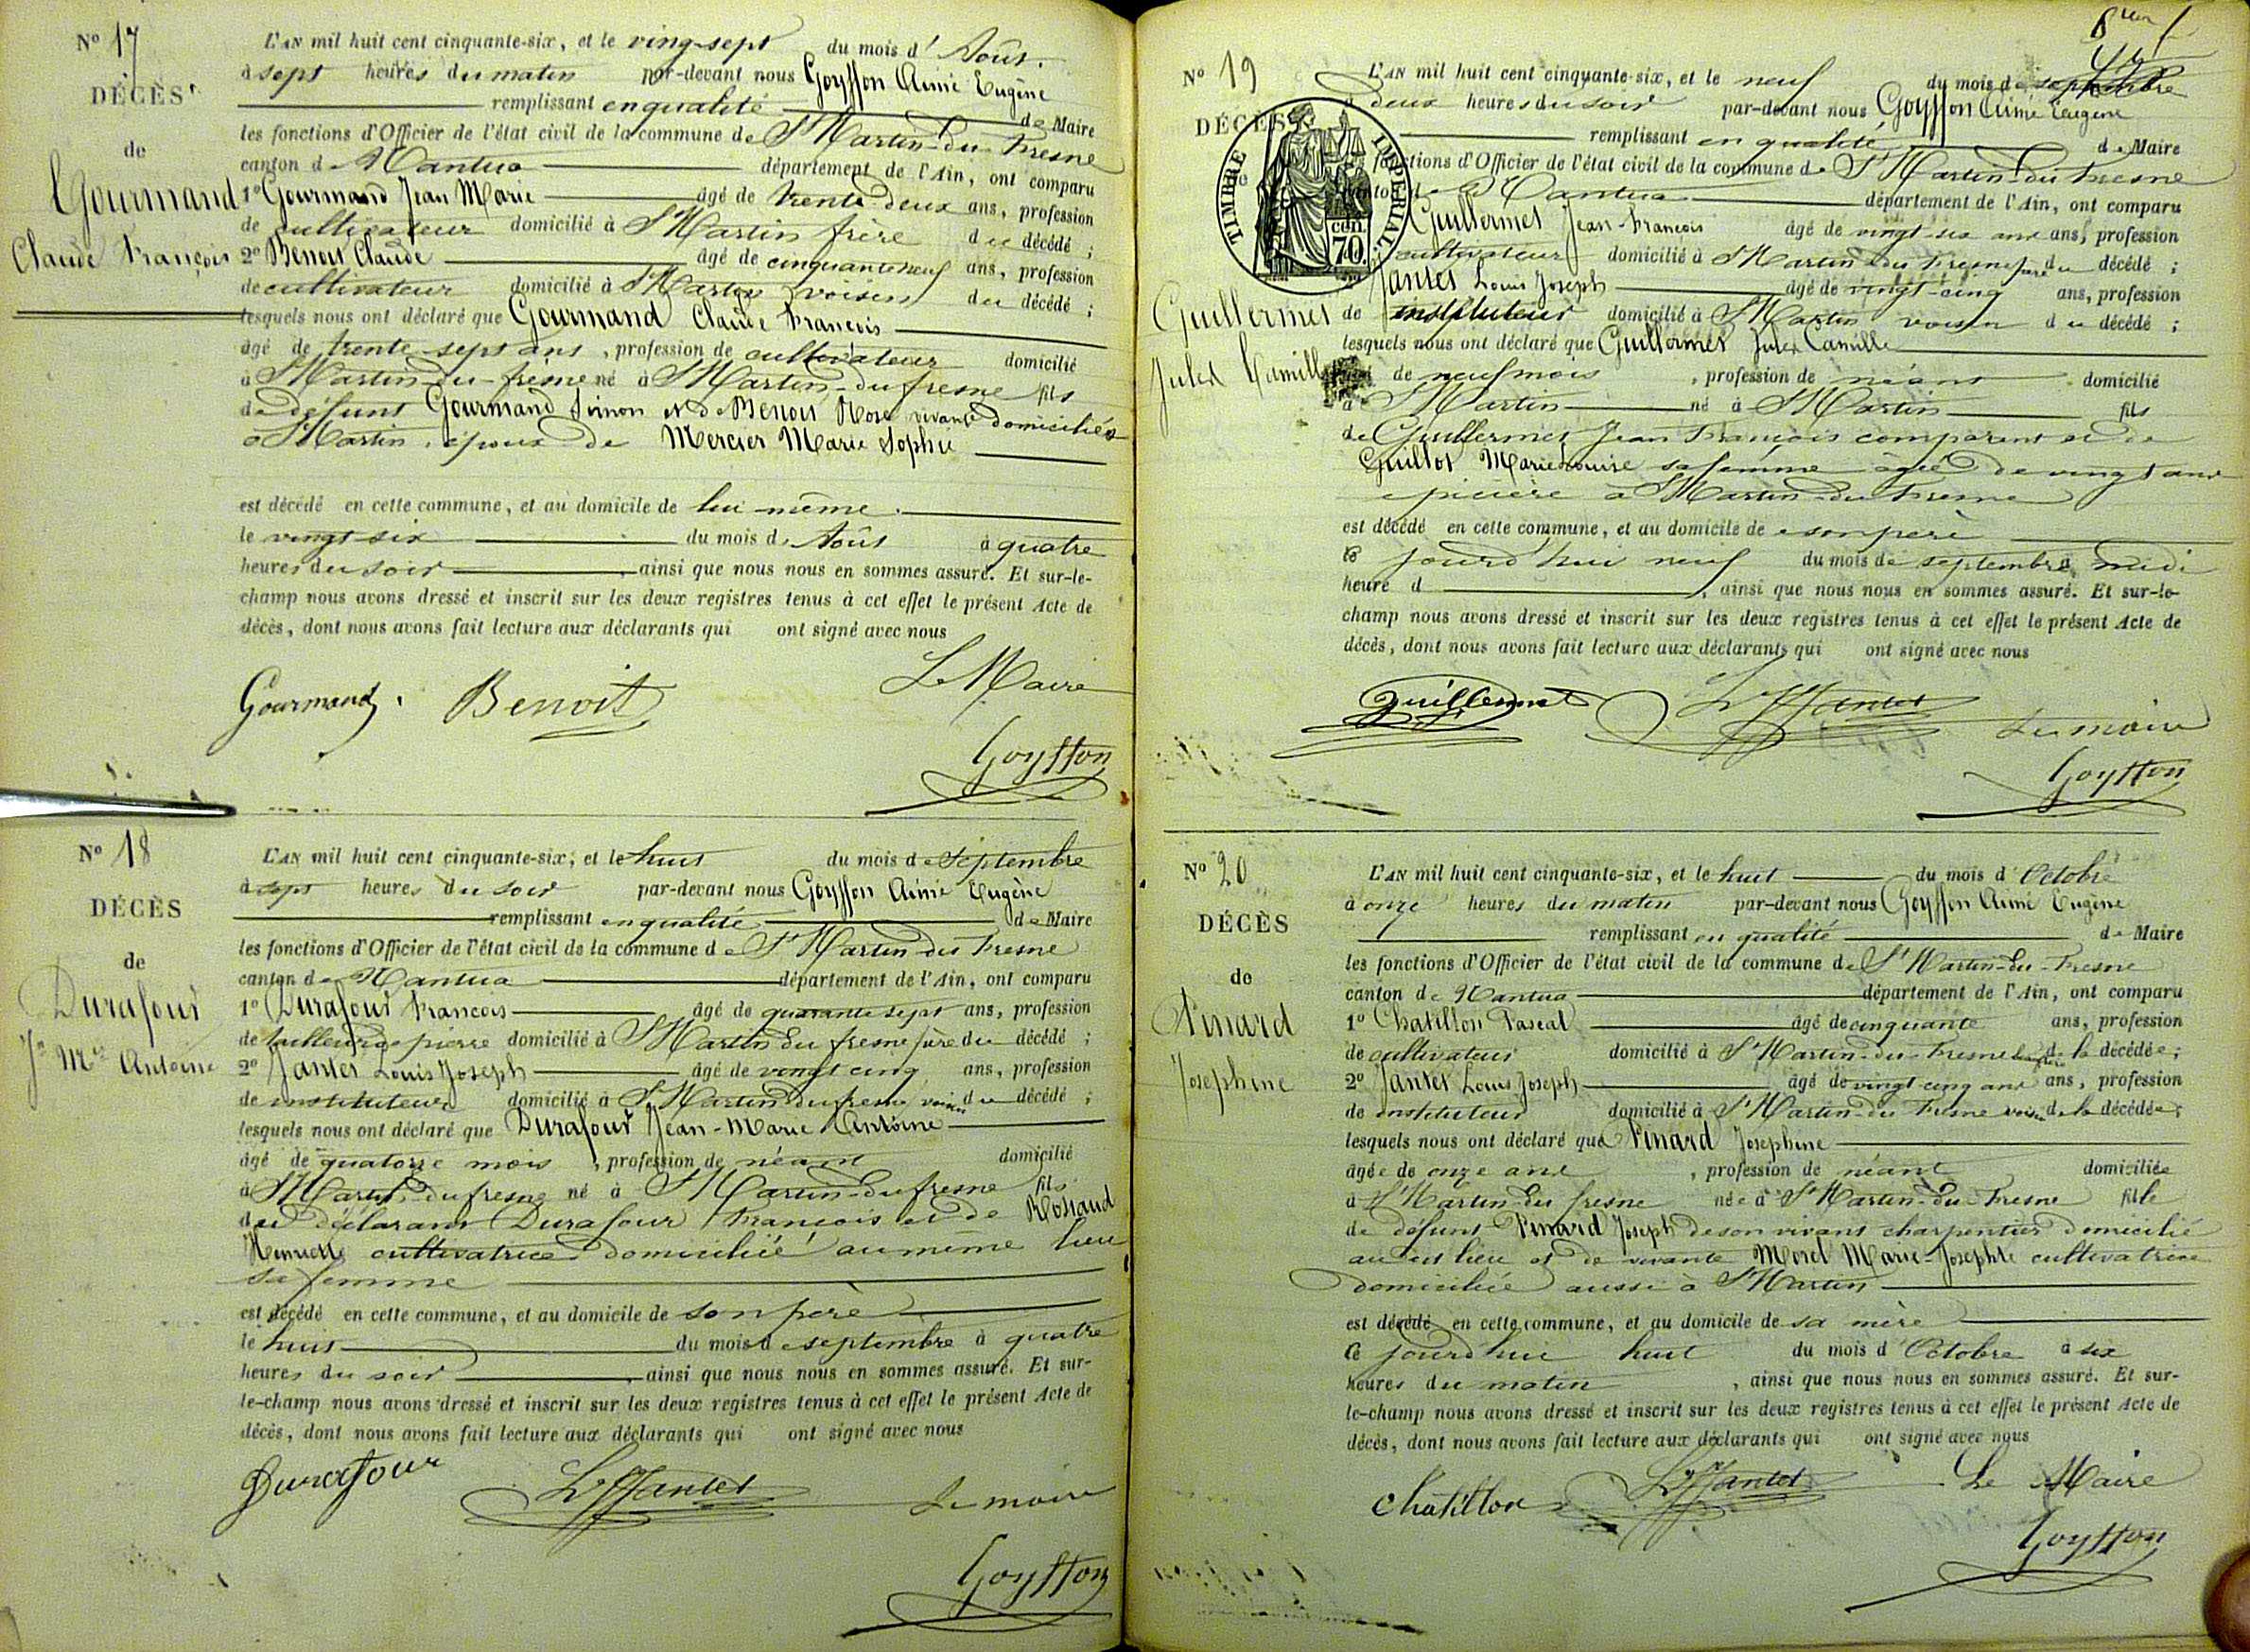 N° 17
DÉCÈS
de
Gourmand
Claude François
L'AN mil huit cent cinquante-six, et le vingt-sept du mois d' Août.
à sept heures du matin par-devant nous Goyffon Aimé Eugène
remplissant en qualité de Maire
les fonctions d'Officier de l'état civil de la commune de St Martin-du-Fresne
canton de Nantua département de l'Ain, ont comparu
1° Gourmand Jean Marie âgé de trente deux ans, profession
de cultivateur domicilié à St Martin frère du décédé ;
2° Benoit Claude âgé de cinquante neuf ans, profession
de cultivateur domicilié à St Martin voisin du décédé ;
lesquels nous ont déclaré que Gourmand Claude François
âgé de trente sept ans, profession de cultivateur domicilié
à St Martin-du-fresne né à St Martin-du fresne fils
de défunt Gourmand Simon et de Benoit Rose vivante domiciliés
à St Martin, époux de Mercier Marie Sophie
est décédé en cette commune, et au domicile de lui-même.
le vingt six du mois d' Août à quatre
heures du soir, ainsi que nous nous en sommes assuré. Et sur-le-
champ nous avons dressé et inscrit sur les deux registres tenus à cet effet le présent Acte de
décès, dont nous avons fait lecture aux déclarants qui ont signé avec nous
Le Maire
Gourmand. Benoit
Goyffon
N° 18
DÉCÈS
de
Durafour
Jn Mie Antoine
L'AN mil huit cent cinquante-six, et le huit du mois de Septembre
à sept heures du soir par-devant nous Goyffon Aimé Eugène
remplissant en qualité de Maire
les fonctions d'Officier de l'état civil de la commune de St Martin du Fresne
canton de Nantua département de l'Ain, ont comparu
1° Durafour François âgé de quarante sept ans, profession
de tailleur de pierre domicilié à St Martin du fresne père du décédé ;
2° Jantet Louis Joseph âgé de vingt cinq ans, profession
de instituteur domicilié à St Martin du fresne voisin du décédé ;
lesquels nous ont déclaré que Durafour Jean-Marie Antoine
âgé de quatorze mois, profession de néant domicilié
à St Martin du fresne né à St Martin-du fresne fils
du déclarant Durafour François et de Rostand
Henriette cultivatrice domiciliée au même lieu
sa femme
est décédé en cette commune, et au domicile de son père
le huit du mois de septembre à quatre
heures du soir, ainsi que nous nous en sommes assuré. Et sur-
le-champ nous avons dressé et inscrit sur les deux registres tenus à cet effet le présent Acte de
décès, dont nous avons fait lecture aux déclarants qui ont signé avec nous
Durafour L J Jantet Le maire
Goyffon
N° 19
DÉCÈS
TIMBRE IMPÉRIAL.
cen. 70.
Guillermet
Jules Camille
L'AN mil huit cent cinquante-six, et le neuf du mois de septembre
deux heures du soir par-devant nous Goyffon Aimé Eugène
remplissant en qualité de Maire
fonctions d'Officier de l'état civil de la commune de St Martin-du Fresne
canton de Nantua département de l'Ain, ont comparu
Guillermet Jean-François âgé de vingt-six ans ans, profession
cultivateur domicilié à St Martin du Fresne père du décédé ;
Jantet Louis Joseph âgé de vingt-cinq ans, profession
de instituteur domicilié à St Martin voisin du décédé ;
lesquels nous ont déclaré que Guillermet Jules Camille
de neuf mois, profession de néant domicilié
à St Martin né à St Martin fils
de Guillermet Jean François comparant et de
Guillot Marie Louise sa femme âgée de vingt ans
épicière à St Martin-du Fresne
est décédé en cette commune, et au domicile de son père
ce jourd'hui neuf du mois de septembre midi
heure d, ainsi que nous nous en sommes assuré. Et sur-le-
champ nous avons dressé et inscrit sur les deux registres tenus à cet effet le présent Acte de
décès, dont nous avons fait lecture aux déclarants qui ont signé avec nous
Guillermet L J Jantet Le maire
Goyffon
N° 20
DÉCÈS
de
Pinard
Josephine
L'AN mil huit cent cinquante-six, et le huit du mois d' Octobre
à onze heures du matin par-devant nous Goyffon Aimé Eugène
remplissant en qualité de Maire
les fonctions d'Officier de l'état civil de la commune de St Martin-du-Fresne
canton de Nantua département de l'Ain, ont comparu
1° Chatillon Pascal âgé de cinquante ans, profession
de cultivateur domicilié à St Martin-du-Fresne de la décédée ;
2° Jantet Louis Joseph âgé de vingt cinq ans ans, profession
de instituteur domicilié à St Martin-du Fresne voisin de la décédée ;
lesquels nous ont déclaré que Pinard Josephine
âgée de onze ans, profession de néant domiciliée
à St Martin-du fresne née à St Martin-du-Fresne fille
de défunt Pinard Joseph de son vivant charpentier domicilié
au dit lieu et de vivante Morel Marie-Josephte cultivatrice
domiciliée aussi à St Martin
est décédé en cette commune, et au domicile de sa mère
ce jourd'hui huit du mois d' Octobre à six
heures du matin, ainsi que nous nous en sommes assuré. Et sur-
le-champ nous avons dressé et inscrit sur les deux registres tenus à cet effet le présent Acte de
décès, dont nous avons fait lecture aux déclarants qui ont signé avec nous
Chatillon L J Jantet Le Maire
Goyffon